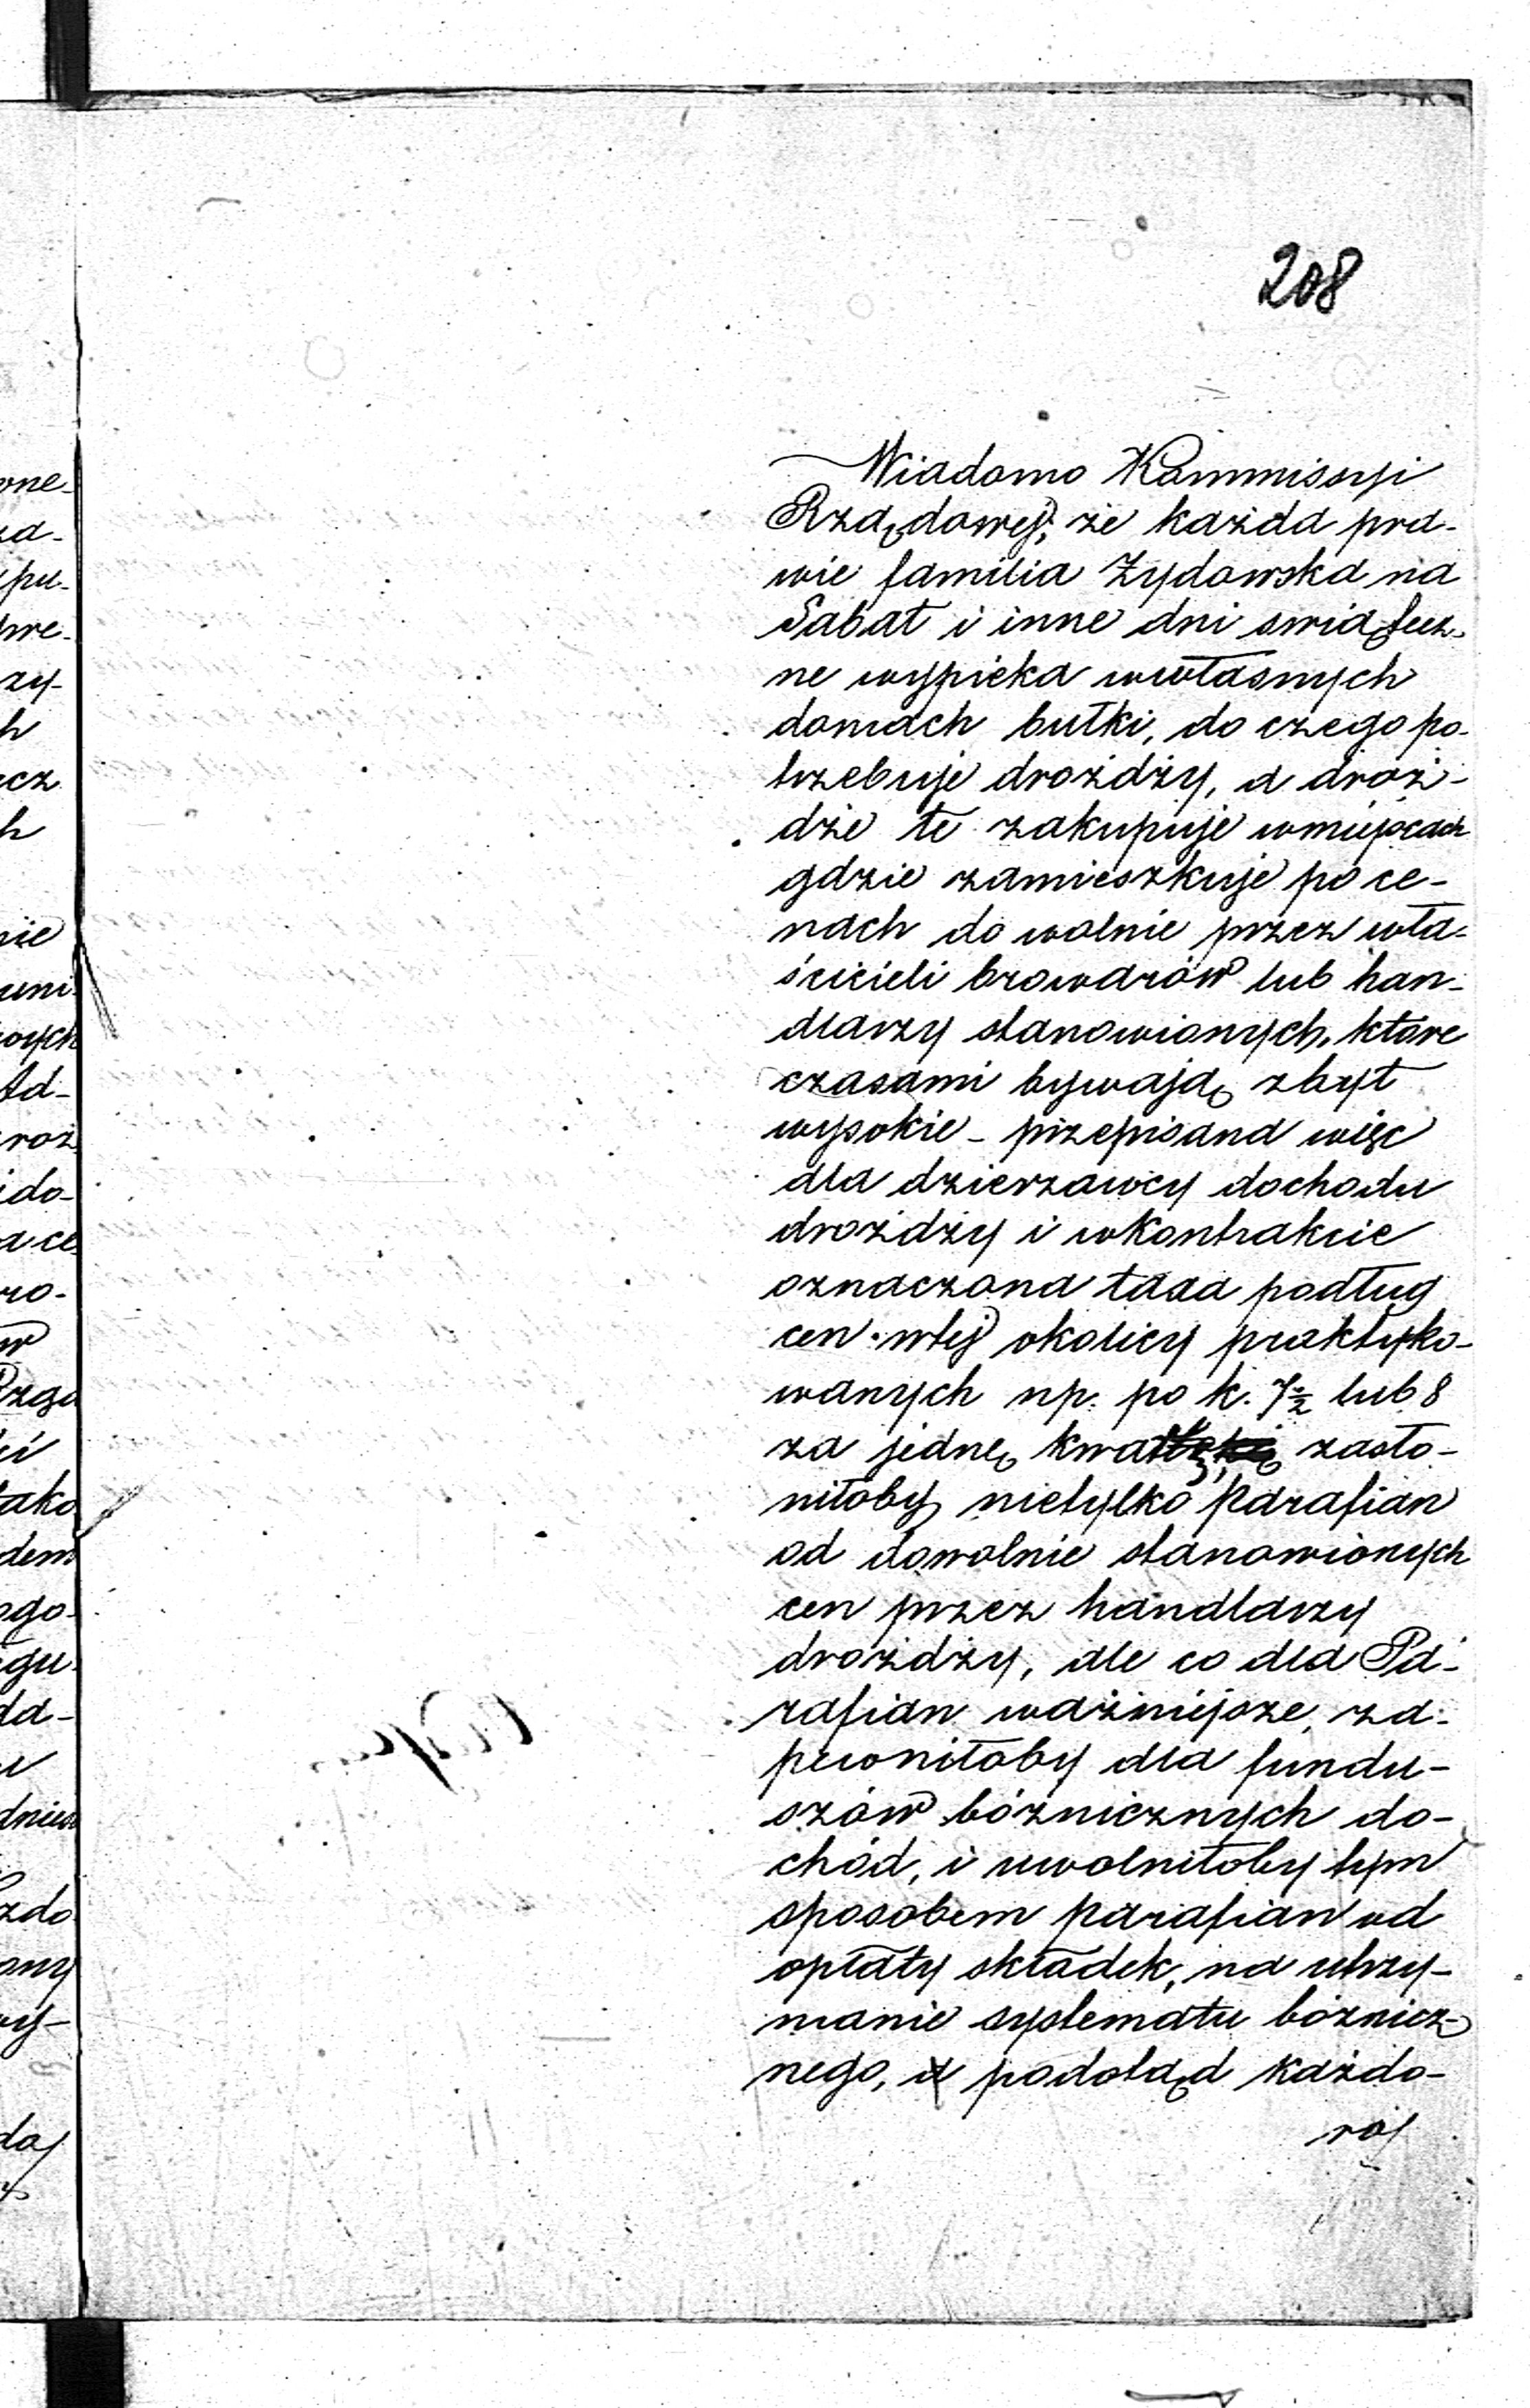 208
Wiadomo Kommissyi
Rządowej, że każda pra-
wie familia Żydowska na
Sabat i inne dni swiątecz-
ne wypieka wwłasnych
domach bułki, do czego po-
trzebuje drożdży, a droż-
dże te zakupuje wmiejscach
gdzie zamieszkuje po ce-
nach do wolnie przez wła-
ścicieli browarów lub han-
dlarzy stanowionych, które
czasami bywają zbyt
wysokie – przepisana więc
dla dzierzawcy dochodu
drożdży i wkontrakcie
oznaczona taxa podług
cen wtej okolicy praktyko-
wanych np. po k. 7½ lub 8
za jednę zasło-
niłoby nietylko Parafian
od dowolnie stanowionych
cen przez handlarzy
drożdży, ale co dla Pa-
rafian ważniejsze, za-
pewniłoby dla fundu-
szów bóżnicznych do-
chód, i uwolniłoby tym
sposobem parafian od
opłaty składek, na utrzy-
manie systematu bóżnicz-
nego, podotąd każdo-